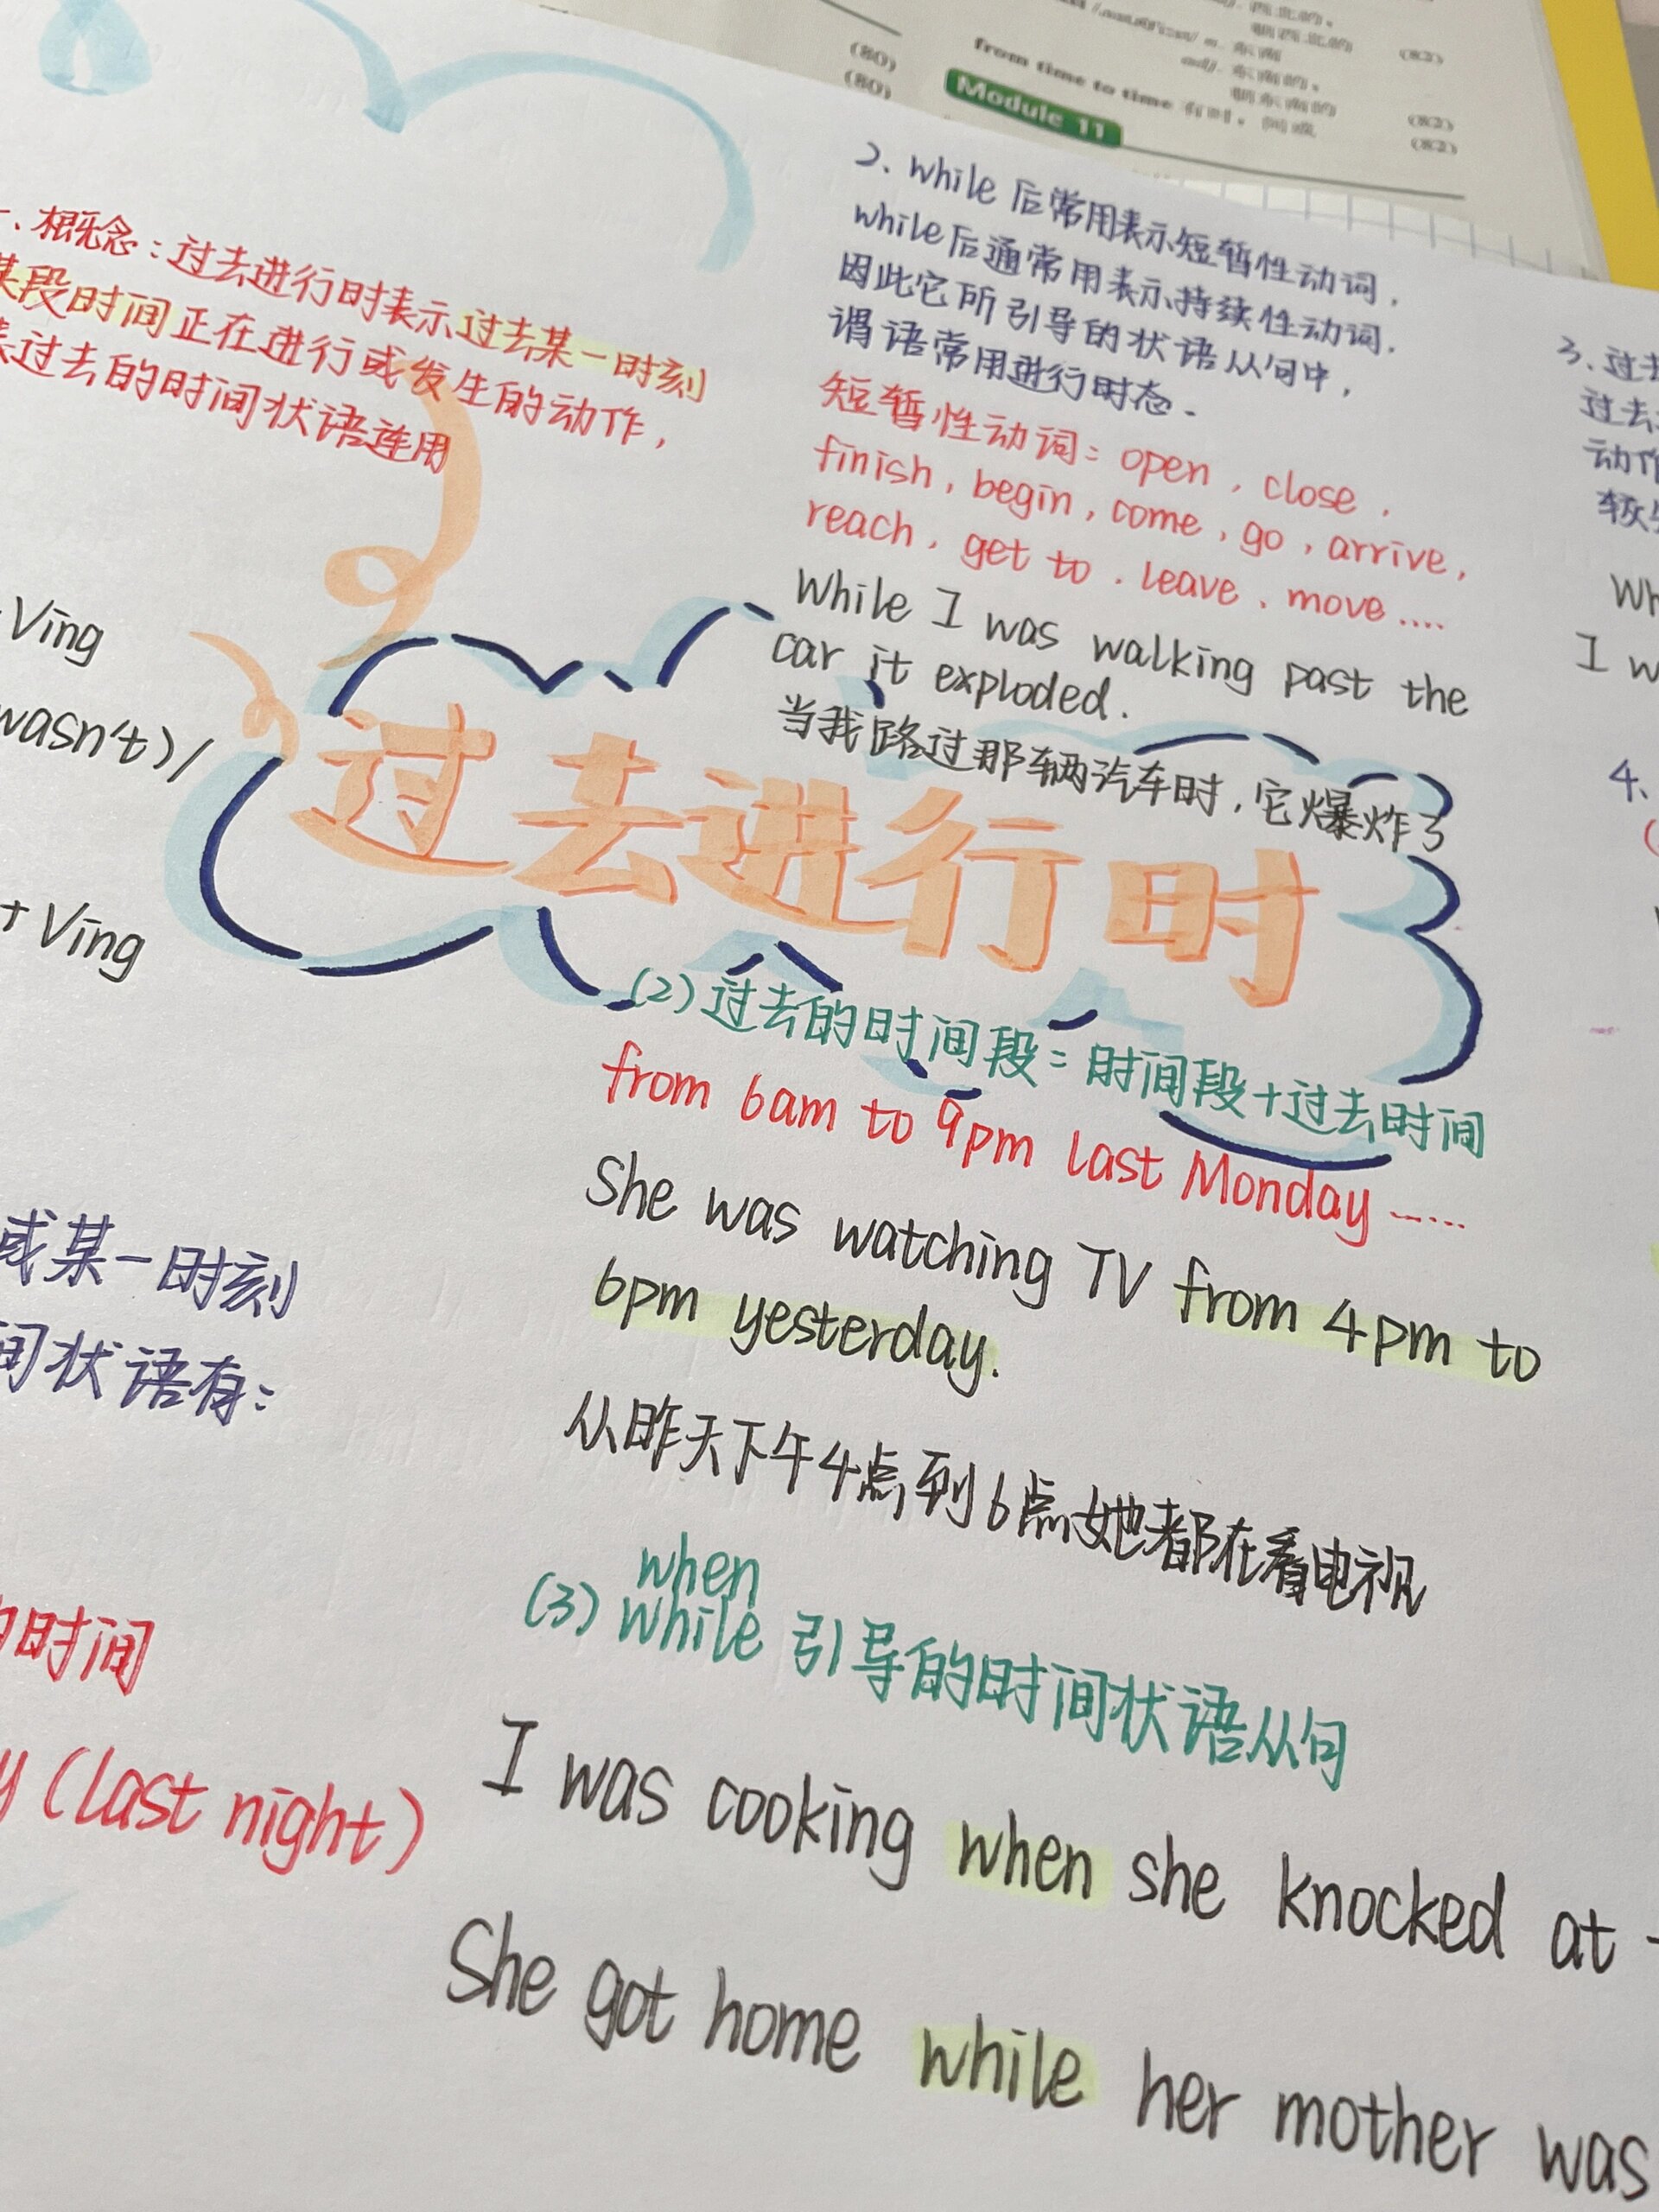 (80)
(80)
from time to time 有时，间或
(82)
(82)
(82)
Module 11
一、概念：过去进行时表示过去某一时刻
某段时间正在进行或发生的动作，
表过去的时间状语连用
Ving
wasn't)/
+ Ving
或某一时刻
间状语有：
时间
y (last night)
2、while后常用表示短暂性动词，
while后通常用表示持续性动词.
因此它所引导的状语从句中，
谓语常用进行时态.
短暂性动词：open，close，
finish，begin，come，go，arrive，
reach，get to．leave、move....
While I was walking past the
car it exploded.
当我路过那辆汽车时，它爆炸了
过去进行时
(2)过去的时间段：时间段+过去时间
from 6am to 9pm last Monday......
She was watching TV from 4pm to
6pm yesterday.
从昨天下午4点到6点她都在看电视
when
(3) while 引导的时间状语从句
I was cooking when she knocked at
She got home while her mother was
3、过去
过去
动作
I w
4、